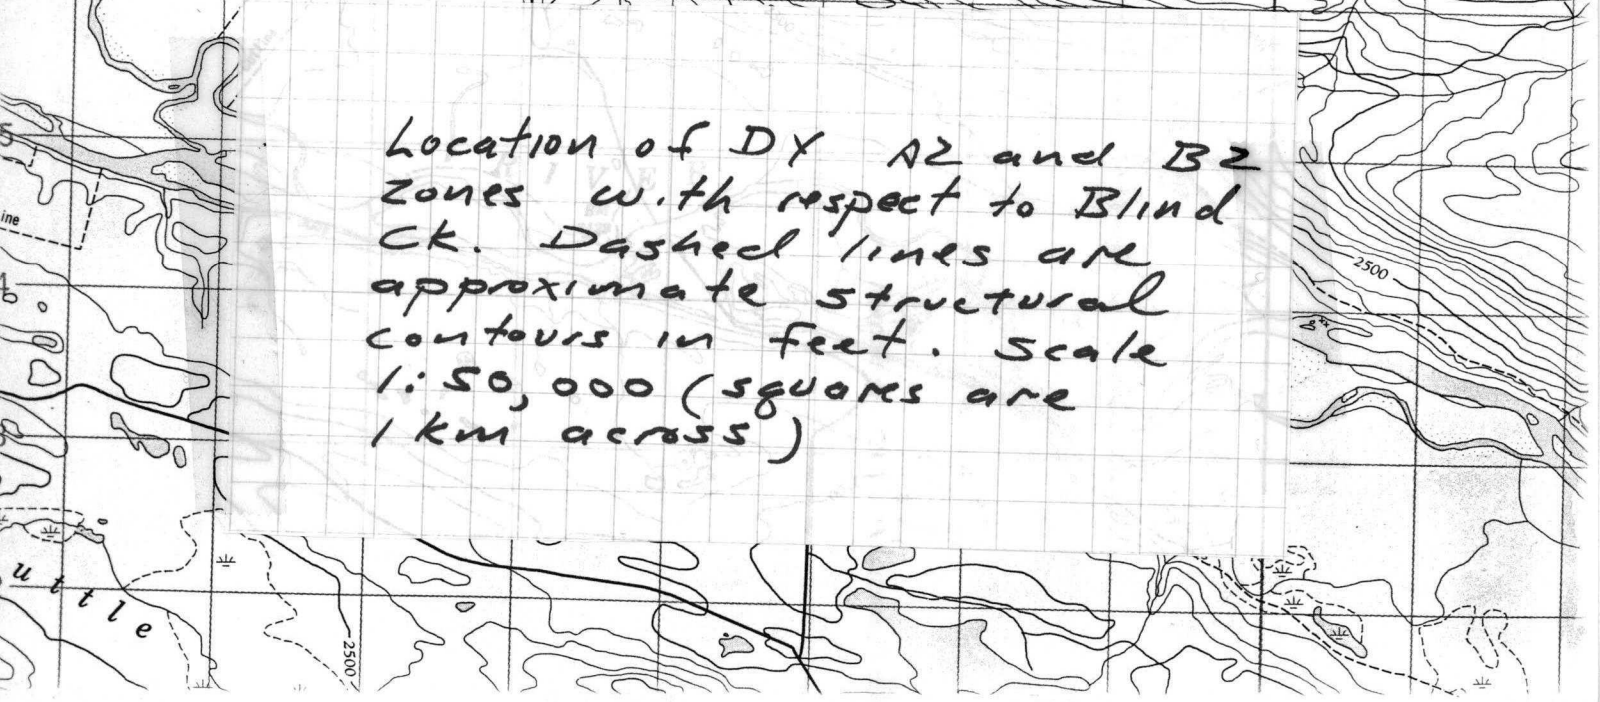 Location of DY A2 and B2
zones with respect to Blind
Ck. Dashed lines are
approximate structural
contours in feet. Scale
1:50,000 (squares are
1 km across)
5
ine
4
3
2500
uttle
2500